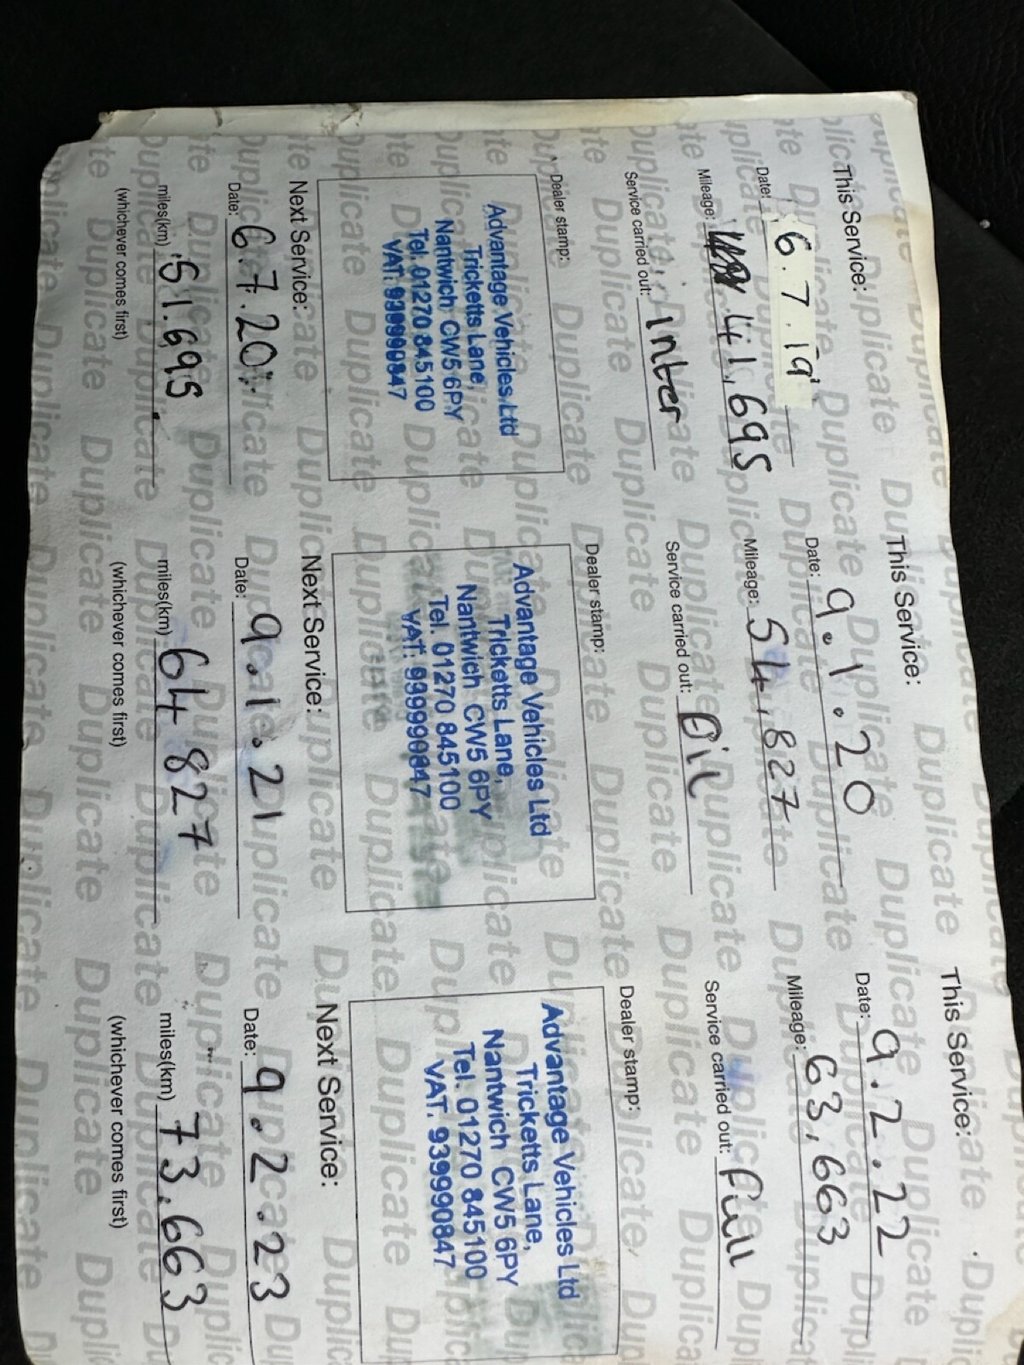 This Service:
Date: 6.7.19
Mileage: 41,695
Service carried out: inter
Dealer stamp:
Advantage Vehicles Ltd
Tricketts Lane,
Nantwich CW5 6PY
Tel. 01270 845100
VAT. 939990847
Next Service:
Date: 6.7.20
miles(km) 51.695
(whichever comes first)
This Service:
Date: 9.1.20
Mileage: 54,827
Service carried out: Oil
Dealer stamp:
Advantage Vehicles Ltd
Tricketts Lane,
Nantwich CW5 6PY
Tel. 01270 845100
VAT. 939990847
Next Service:
Date: 9.1.21
miles(km) 64 827
(whichever comes first)
This Service:
Date: 9.2.22
Mileage: 63,663
Service carried out: Full
Dealer stamp:
Advantage Vehicles Ltd
Tricketts Lane,
Nantwich CW5 6PY
Tel. 01270 845100
VAT. 939990847
Next Service:
Date: 9.2.23
miles(km) 73,663
(whichever comes first)
Duplicate Duplicate Duplicate Duplicate